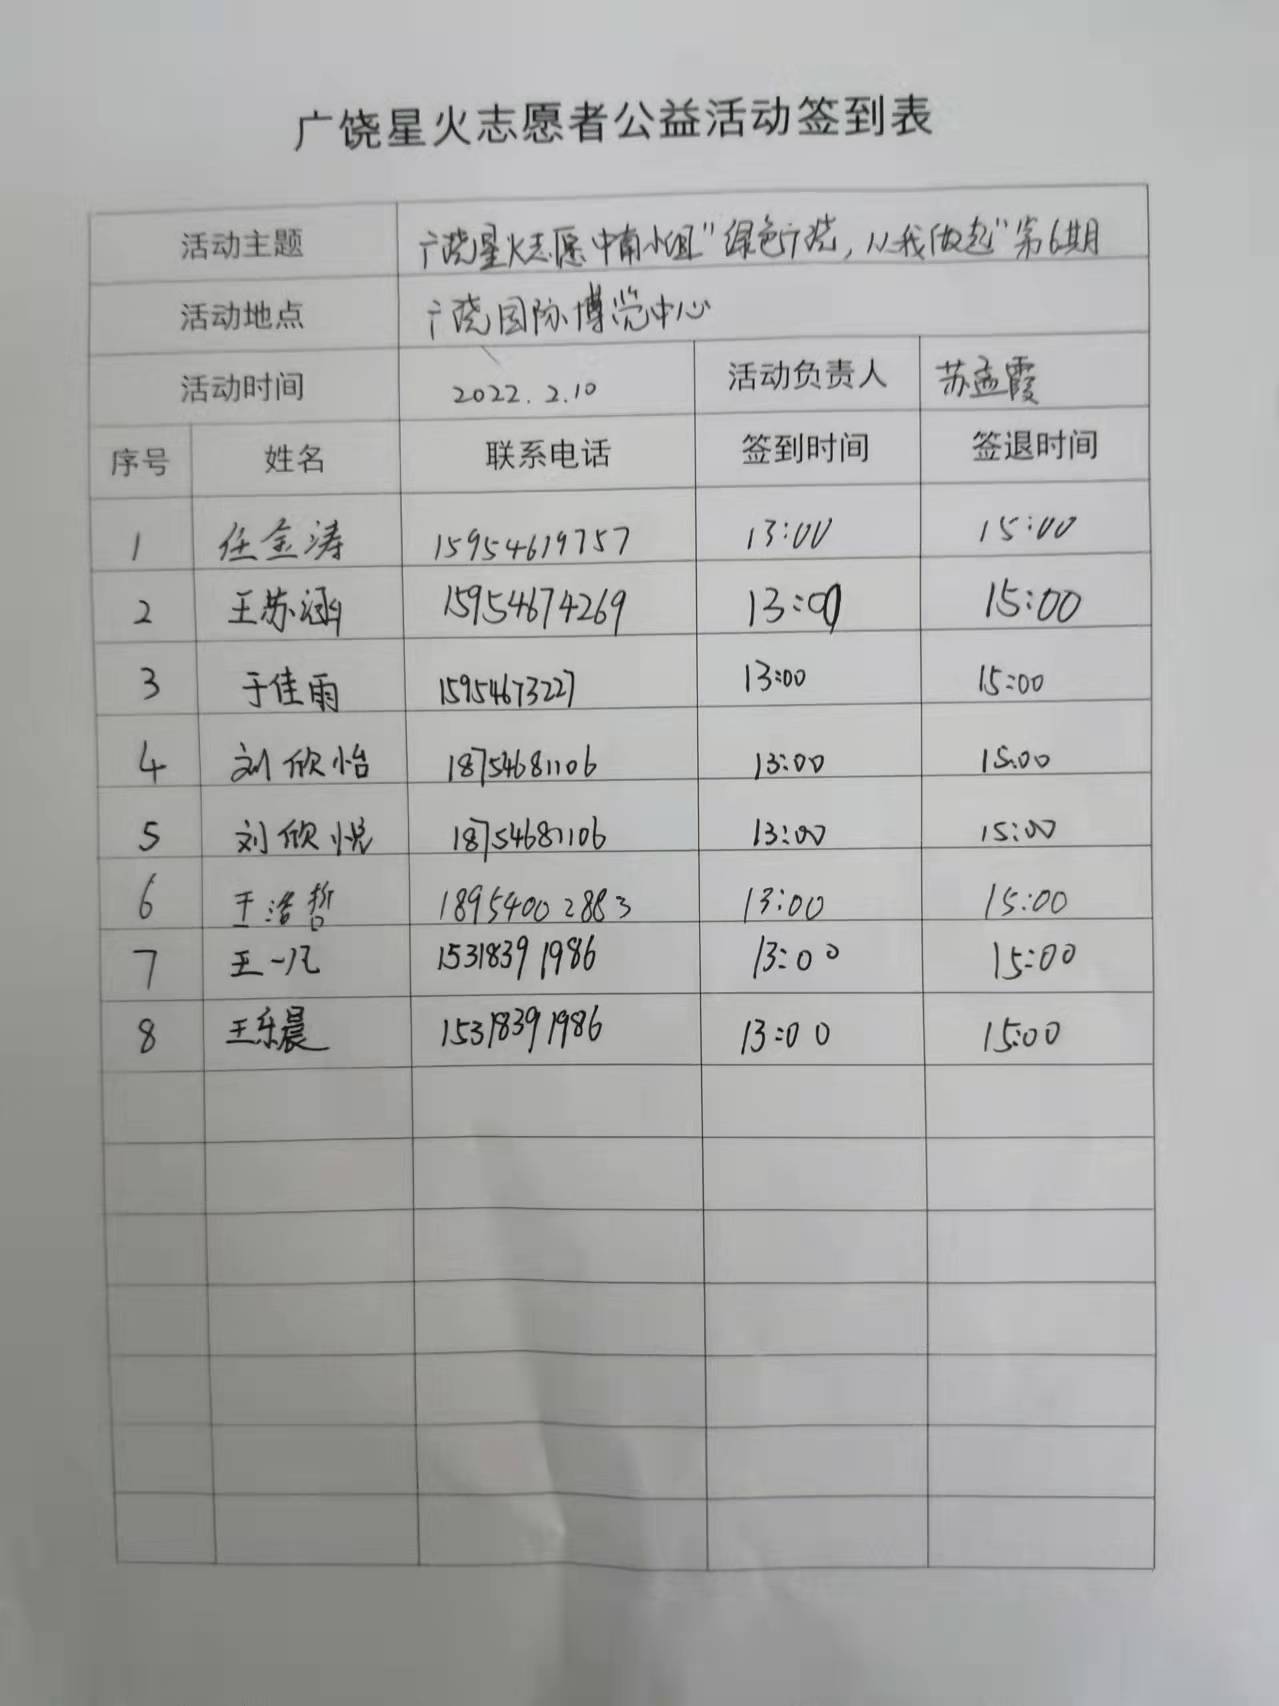 广饶星火志愿者公益活动签到表
活动主题 广饶星火志愿中南小组"绿色广饶，从我做起"第6期
活动地点 广饶国际博览中心
活动时间 2022.2.10 活动负责人 苏孟霞
序号 姓名 联系电话 签到时间 签退时间
1 任金涛 15954619757 13:00 15:00
2 王苏涵 15954674269 13:00 15:00
3 于佳雨 15954673227 13:00 15:00
4 刘欣怡 18754681106 13:00 15:00
5 刘欣悦 18754681106 13:00 15:00
6 王浩哲 18954002883 13:00 15:00
7 王一凡 15318391986 13:00 15:00
8 王乐晨 15318391986 13:00 15:00